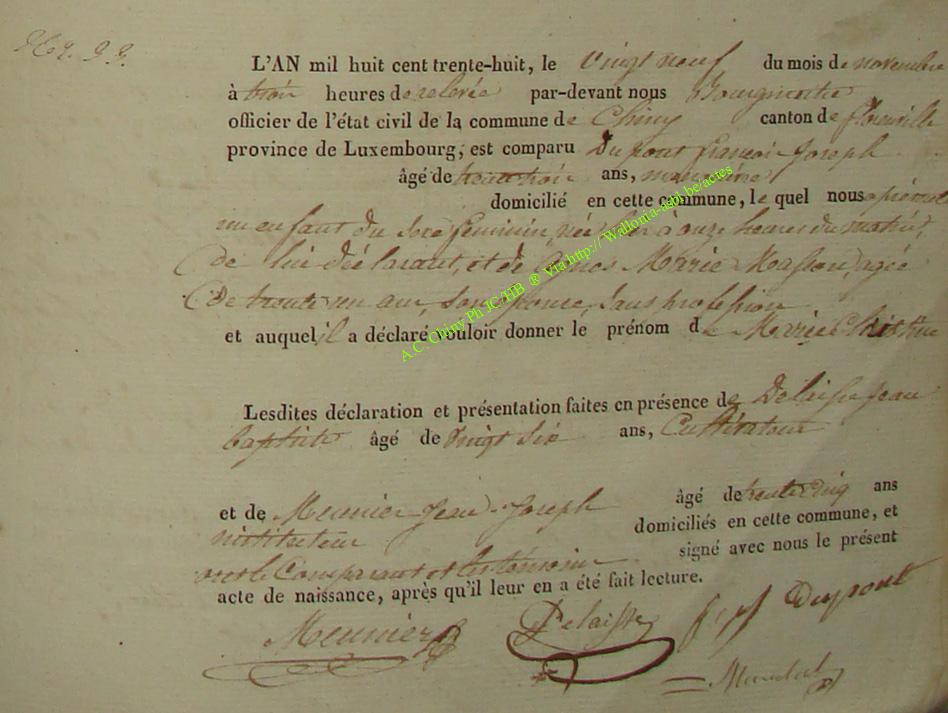 L'AN mil huit cent trente-huit, le vingt neuf du mois de novembre
à trois heures de relevée par-devant nous Bourgmestre
officier de l'état civil de la commune de Chiny canton de florenville
province de Luxembourg; est comparu Dupont françois Joseph
âgé de trente trois ans,
domicilié en cette commune, le quel nous a présenté
un enfant du sexe feminin, née hier à onze heures du matin,
de lui déclarant, et de Marie Masson, agée
De trente un ans, son épouse, sans profession
et auquel il a déclaré vouloir donner le prénom de Marie
Lesdites déclaration et présentation faites en présence de Delaisse jean
baptiste âgé de vingt six ans, Cultivateur
et de Meunier jean Joseph âgé de trente cinq ans
instituteur domiciliés en cette commune, et
avec le Comparant et les témoins signé avec nous le présent
acte de naissance, après qu'il leur en a été fait lecture.
Meunier Delaisse Dupont
A.C. Chiny Ph JC/HB ® Via http://Wallonia-asbl.be/actes